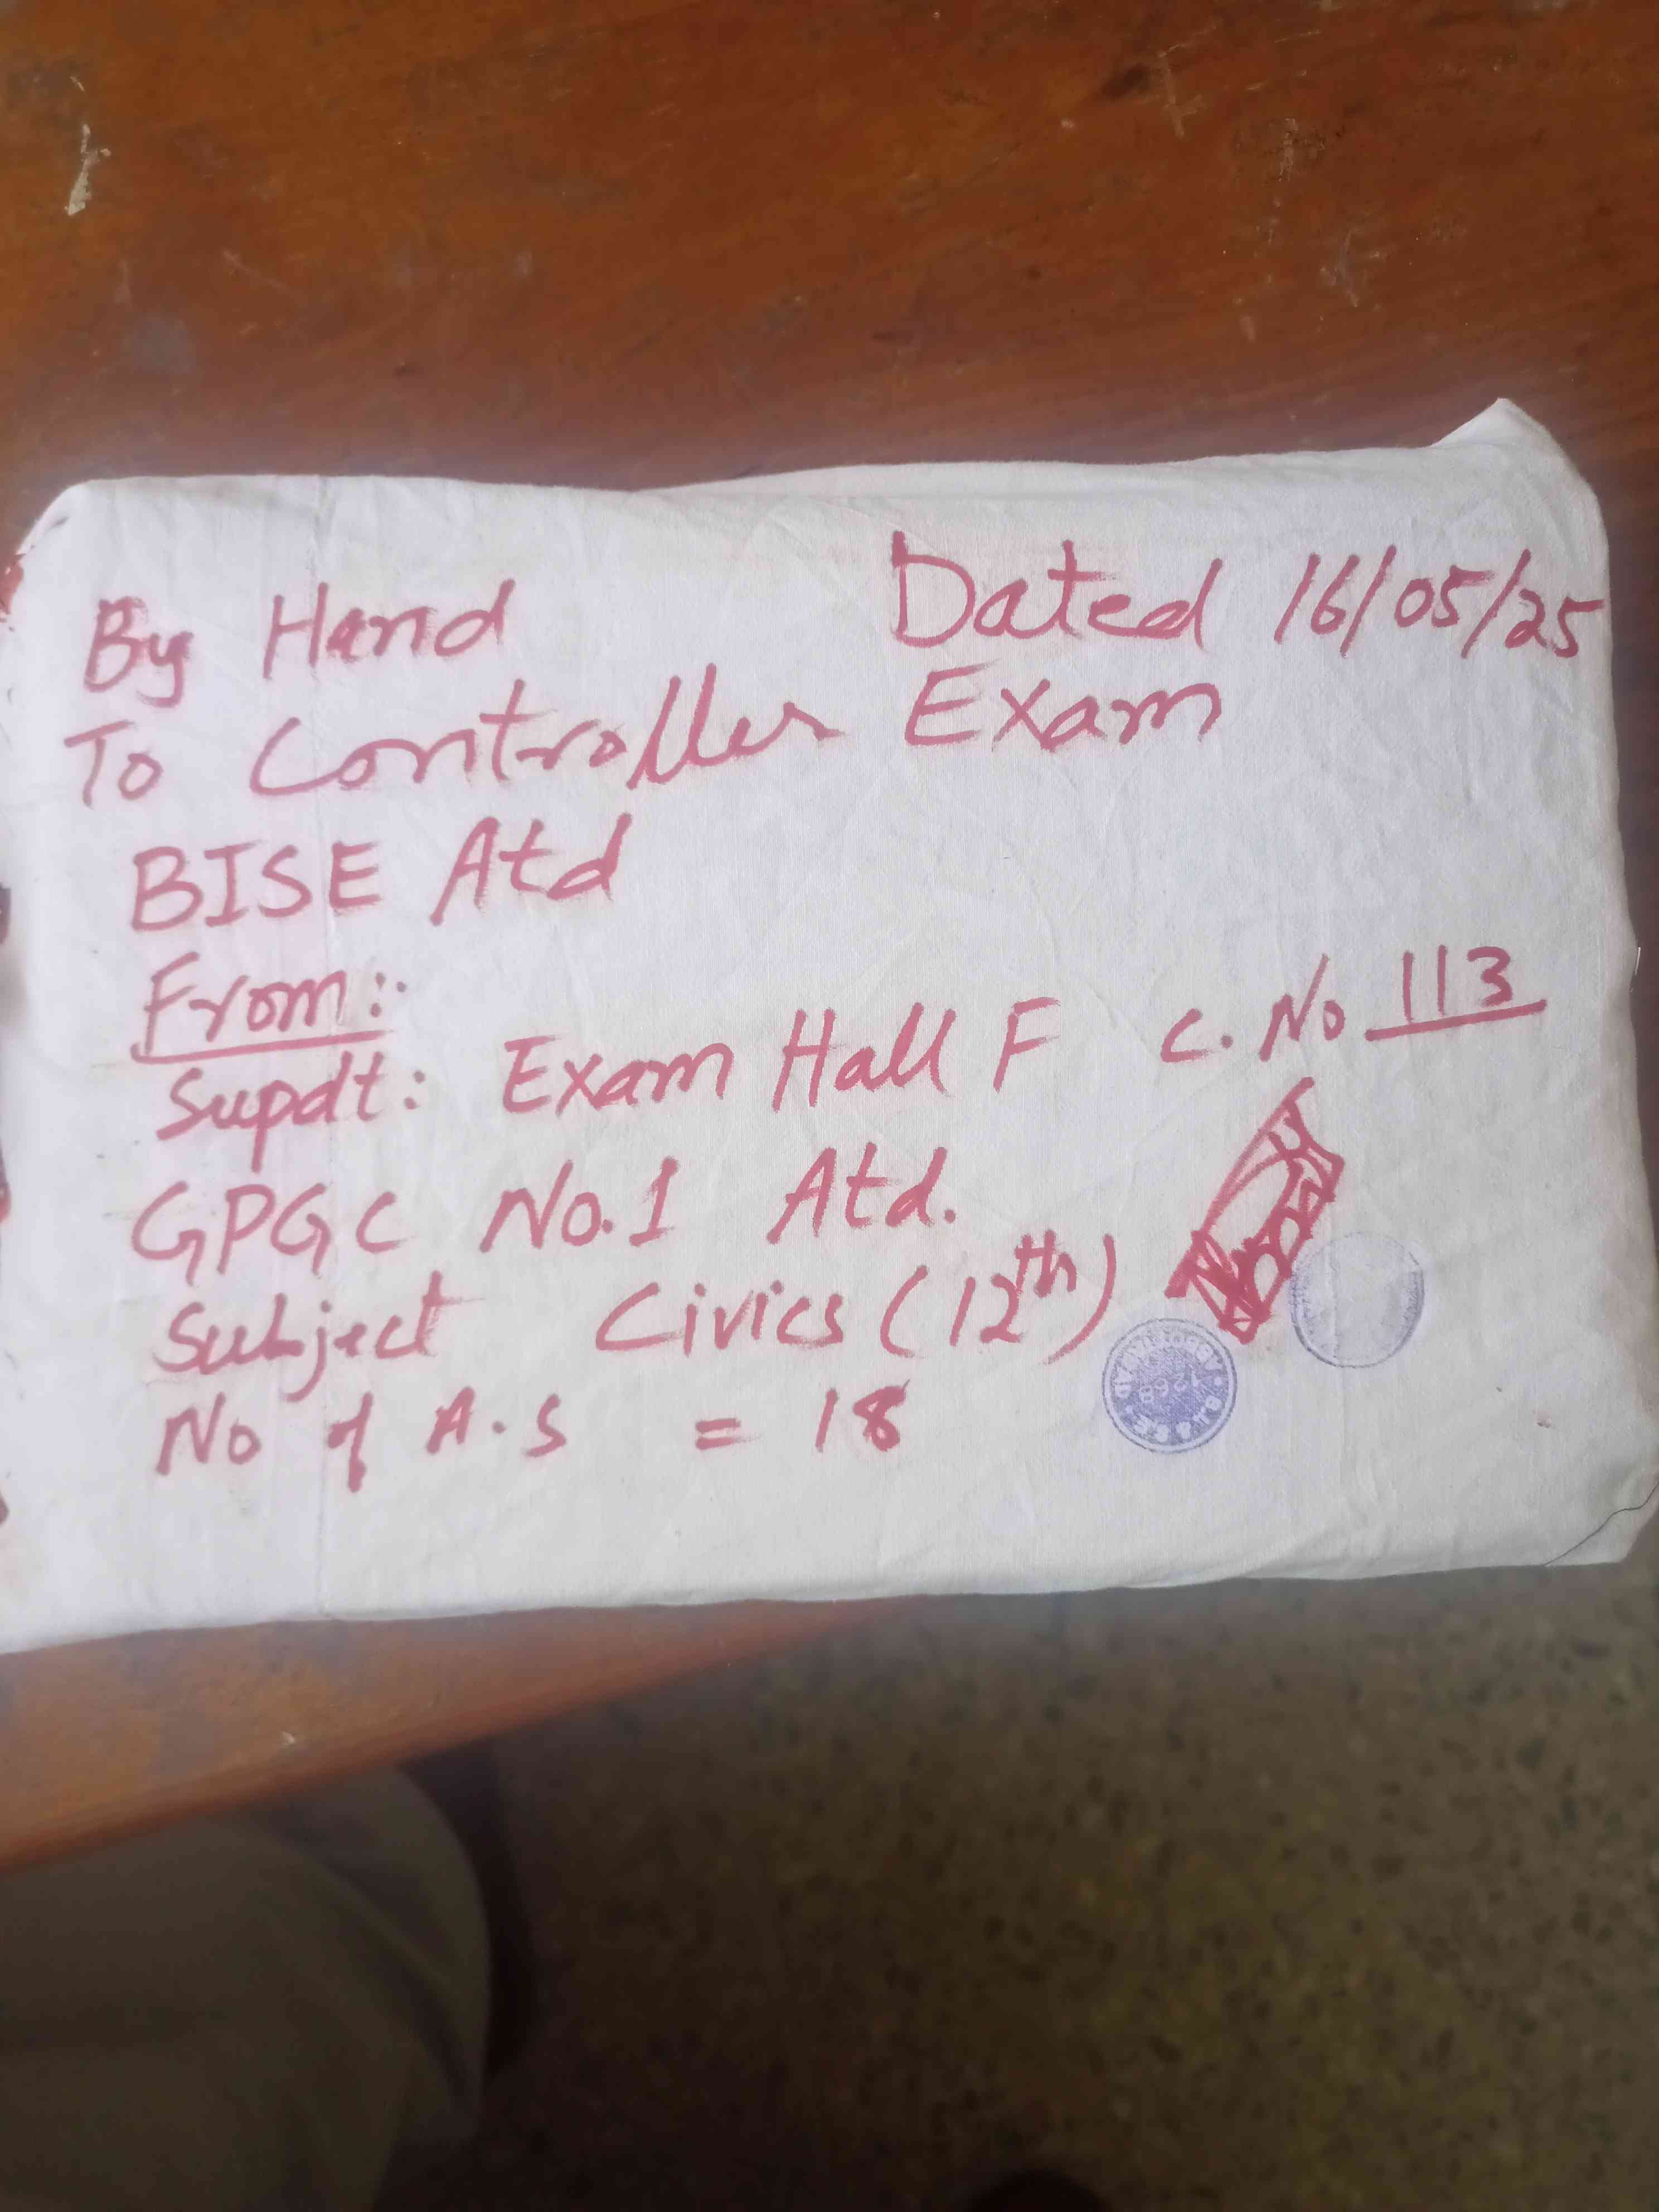 By Hand Dated 16/05/25
To Controller Exam
BISE Atd
From:
Supdt: Exam Hall F C. No 113
GPGC No. 1 Atd.
Subject Civics (12th)
No of A.S = 18